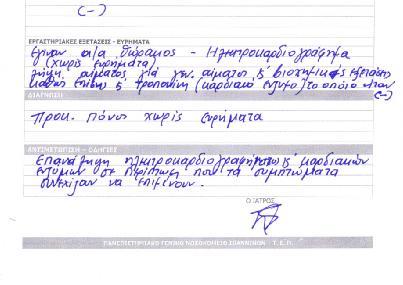 (-)
ΕΡΓΑΣΤΗΡΙΑΚΕΣ ΕΞΕΤΑΣΕΙΣ - ΕΥΡΗΜΑΤΑ
Εγιναν α/α θώρακος - Ηλεκτροκαρδιογράφημα
(χωρίς ευρήματα)
λήψη αίματος για γεν. αίματος & βιοχημικές εξετάσεις
καθώς επίσης & τροπονίνη (καρδιακό ένζυμο) το οποίο ήταν
(-)
ΔΙΑΓΝΩΣΗ
προκ. πόνος χωρίς ευρήματα
ΑΝΤΙΜΕΤΩΠΙΣΗ - ΟΔΗΓΙΕΣ
Επανάληψη ηλεκτροκαρδιογραφήματος & καρδιακών
ενζύμων σε περίπτωση που τα συμπτώματα
συνεχίσουν να επιμένουν.
Ο ΙΑΤΡΟΣ
ΠΑΝΕΠΙΣΤΗΜΙΑΚΟ ΓΕΝΙΚΟ ΝΟΣΟΚΟΜΕΙΟ ΙΩΑΝΝΙΝΩΝ - Τ.Ε.Π.